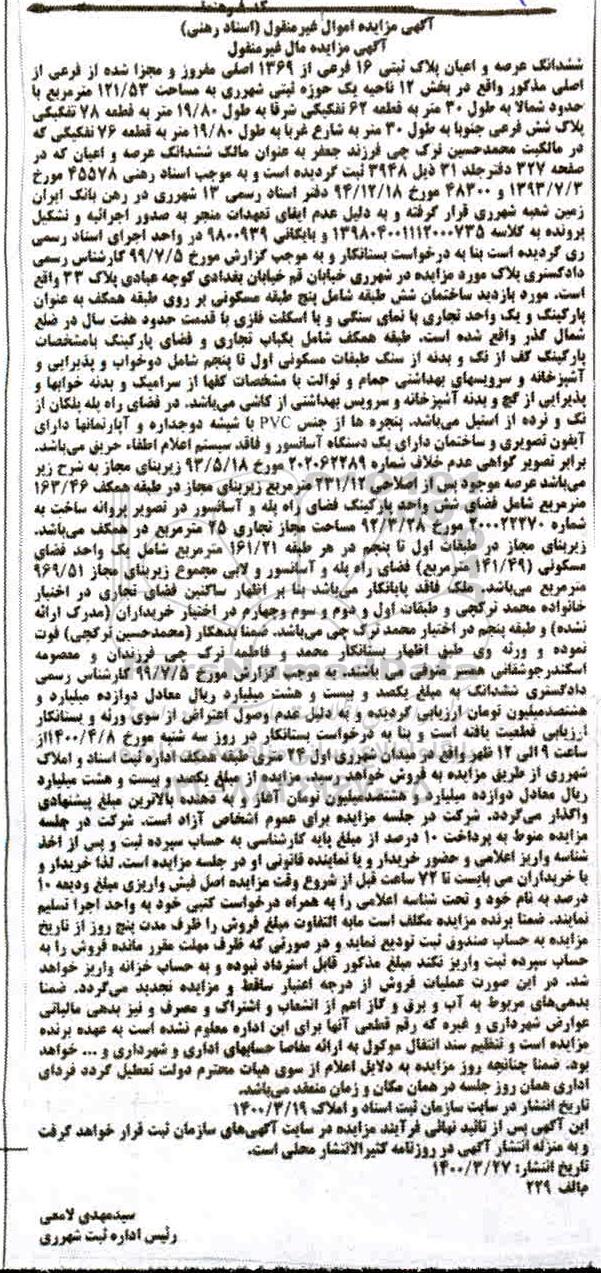 آگهی مزایده اموال غیرمنقول (اسناد رهنی)
آگهی مزایده مال غیرمنقول
ششدانگ عرصه و اعیان پلاک ثبتی ۱۶ فرعی از ۱۳۶۹ اصلی مفروز و مجزا شده از فرعی از
اصلی مذکور واقع در بخش ۱۲ ناحیه یک حوزه ثبتی شهرری به مساحت ۱۲۱/۵۳ مترمربع با
حدود شمالا به طول ۳۰ متر به قطعه ۶۲ تفکیکی شرقا به طول ۱۹/۸۰ متر به قطعه ۷۸ تفکیکی
پلاک شش فرعی جنوبا به طول ۳۰ متر به شارع غربا به طول ۱۹/۸۰ متر به قطعه ۷۶ تفکیکی که
در مالکیت محمدحسین ترک چی فرزند جعفر به عنوان مالک ششدانگ عرصه و اعیان که در
صفحه ۳۲۷ دفترجلد ۳۱ ذیل ۳۹۴۸ ثبت گردیده است و به موجب اسناد رهنی ۴۵۵۷۸ مورخ
۱۳۹۳/۷/۳ و ۴۸۳۰۰ مورخ ۹۴/۱۲/۱۸ دفتر اسناد رسمی ۱۳ شهرری در رهن بانک ایران
زمین شعبه شهرری قرار گرفته و به دلیل عدم ایفای تعهدات منجر به صدور اجرائیه و تشکیل
پرونده به کلاسه ۱۳۹۸۰۴۰۰۱۱۱۲۰۰۰۷۳۵ و بایگانی ۹۸۰۰۹۳۹ در واحد اجرای اسناد رسمی
ری گردیده است بنا به درخواست بستانکار و به موجب گزارش مورخ ۹۹/۷/۵ کارشناس رسمی
دادگستری پلاک مورد مزایده در شهرری خیابان قم خیابان بغدادی کوچه عبادی پلاک ۳۳ واقع
است. مورد بازدید ساختمان شش طبقه شامل پنج طبقه مسکونی بر روی طبقه همکف به عنوان
پارکینگ و یک واحد تجاری با نمای سنگی و با اسکلت فلزی با قدمت حدود هفت سال در ضلع
شمال گذر واقع شده است. طبقه همکف شامل یکباب تجاری و فضای پارکینگ بامشخصات
پارکینگ کف از تک و بدنه از سنگ طبقات مسکونی اول تا پنجم شامل دوخواب و پذیرایی و
آشپزخانه و سرویسهای بهداشتی حمام و توالت با مشخصات کفها از سرامیک و بدنه خوابها و
پذیرایی از گچ و بدنه آشپزخانه و سرویس بهداشتی از کاشی می‌باشد. در فضای راه پله پلکان از
تک و نرده از استیل می‌باشد. پنجره ها از جنس PVC با شیشه دوجداره و آپارتمانها دارای
آیفون تصویری و ساختمان دارای یک دستگاه آسانسور و فاقد سیستم اعلام اطفاء حریق می‌باشد.
برابر تصویر گواهی عدم خلاف شماره ۲۰۲۰۶۲۲۸۹ مورخ ۹۳/۵/۱۸ زیربنای مجاز به شرح زیر
می‌باشد عرصه موجود پس از اصلاحی ۲۳۱/۱۲ مترمربع زیربنای مجاز در طبقه همکف ۱۶۳/۴۶
مترمربع شامل فضای شش واحد پارکینگ فضای راه پله و آسانسور در تصویر پروانه ساخت به
شماره ۲۰۰۰۲۲۲۷۰ مورخ ۹۲/۳/۲۸ مساحت مجاز تجاری ۲۵ مترمربع در همکف می‌باشد.
زیربنای مجاز در طبقات اول تا پنجم در هر طبقه ۱۶۱/۲۱ مترمربع شامل یک واحد فضای
مسکونی (۱۴۱/۴۹ مترمربع) فضای راه پله و آسانسور و لابی مجموع زیربنای مجاز ۹۶۹/۵۱
مترمربع می‌باشد. ملک فاقد پایانکار می‌باشد بنا بر اظهار ساکنین فضای تجاری در اختیار
خانواده محمد ترکچی و طبقات اول و دوم و سوم وچهارم در اختیار خریداران (مدرک ارائه
نشده) و طبقه پنجم در اختیار محمد ترک چی می‌باشد. ضمنا بدهکار (محمدحسین ترکچی) فوت
نموده و ورثه وی طبق اظهار بستانکار محمد و فاطمه ترک چی فرزندان و معصومه
اسکندرجوشقانی همسر متوفی می باشند. به موجب گزارش مورخ ۹۹/۷/۵ کارشناس رسمی
دادگستری ششدانگ به مبلغ یکصد و بیست و هشت میلیارد ریال معادل دوازده میلیارد و
هشتصدمیلیون تومان ارزیابی گردیده و به دلیل عدم وصول اعتراض از سوی ورثه و بستانکار
ارزیابی قطعیت یافته است و بنا به درخواست بستانکار در روز سه شنبه مورخ ۱۴۰۰/۴/۸از
ساعت ۹ الی ۱۲ ظهر واقع در میدان شهرری اول ۲۴ متری طبقه همکف اداره ثبت اسناد و املاک
شهرری از طریق مزایده به فروش خواهد رسید. مزایده از مبلغ یکصد و بیست و هشت میلیارد
ریال معادل دوازده میلیارد و هشتصدمیلیون تومان آغاز و به دهنده بالاترین مبلغ پیشنهادی
واگذار می‌گردد. شرکت در جلسه مزایده برای عموم اشخاص آزاد است. شرکت در جلسه
مزایده منوط به پرداخت ۱۰ درصد از مبلغ پایه کارشناسی به حساب سپرده ثبت و پس از اخذ
شناسه واریز اعلامی و حضور خریدار و یا نماینده قانونی او در جلسه مزایده است. لذا خریدار و
یا خریداران می بایست تا ۷۲ ساعت قبل از شروع وقت مزایده اصل فیش واریزی مبلغ ودیعه ۱۰
درصد به نام خود و تحت شناسه اعلامی را به همراه درخواست کتبی خود به واحد اجرا تسلیم
نمایند. ضمنا برنده مزایده مکلف است مابه التفاوت مبلغ فروش را ظرف مدت پنج روز از تاریخ
مزایده به حساب صندوق ثبت تودیع نماید و در صورتی که ظرف مهلت مقرر مانده فروش را به
حساب سپرده ثبت واریز نکند مبلغ مذکور قابل استرداد نبوده و به حساب خزانه واریز خواهد
شد. در این صورت عملیات فروش از درجه اعتبار ساقط و مزایده تجدید می‌گردد. ضمنا
بدهی‌های مربوط به آب و برق و گاز اعم از انشعاب و اشتراک و مصرف و نیز بدهی مالیاتی
عوارض شهرداری و غیره که رقم قطعی آنها برای این اداره معلوم نشده است به عهده برنده
مزایده است و تنظیم سند انتقال موکول به ارائه مفاصا حسابهای اداری و شهرداری و ... خواهد
بود. ضمنا چنانچه روز مزایده به دلایل اعلام از سوی هیات محترم دولت تعطیل گردد فردای
اداری همان روز جلسه در همان مکان و زمان منعقد می‌باشد.
تاریخ انتشار در سایت سازمان ثبت اسناد و املاک ۱۴۰۰/۳/۱۹
این آگهی پس از تائید نهائی فرآیند مزایده در سایت آگهی‌های سازمان ثبت قرار خواهد گرفت
و به منزله انتشار آگهی در روزنامه کثیرالانتشار محلی است.
تاریخ انتشار: ۱۴۰۰/۳/۲۷
م‌الف ۲۲۹
سیدمهدی لامعی
رئیس اداره ثبت شهرری